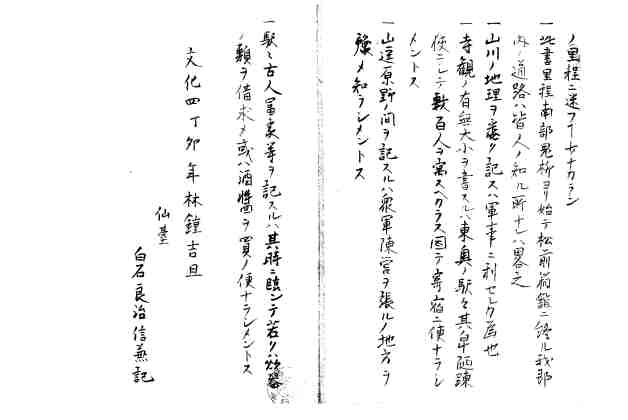 ノ里程ニ迷フ丁ナカラシ
一此書里程南部鬼柳ヨリ始テ松前箱舘ニ終ル我邦
内ノ道路ハ皆人ノ知ル所ナレハ畧之
一山川ノ地理ヲ委ク記スハ軍事ニ利セシク為也
一寺観ノ有無大小ヲ書スルハ東奥ノ駅々其卑陋疎
使ニシテ数百人ヲ寓スヘカラス因テ寄宿ニ便ナラシ
メントス
一山逕原野ノ間ヲ記スルハ衆軍陳営ヲ張ルノ地方ヲ
予メ知ラシメントス
一駅々古人冨家等ヲ記スルハ其時ニ臨ンテ若クハ炊器
ノ類ヲ借求メ或ハ酒醤ヲ買ノ便ナラシメントス
文化四丁卯年林鐘吉旦
仙臺
白石良治信兼記